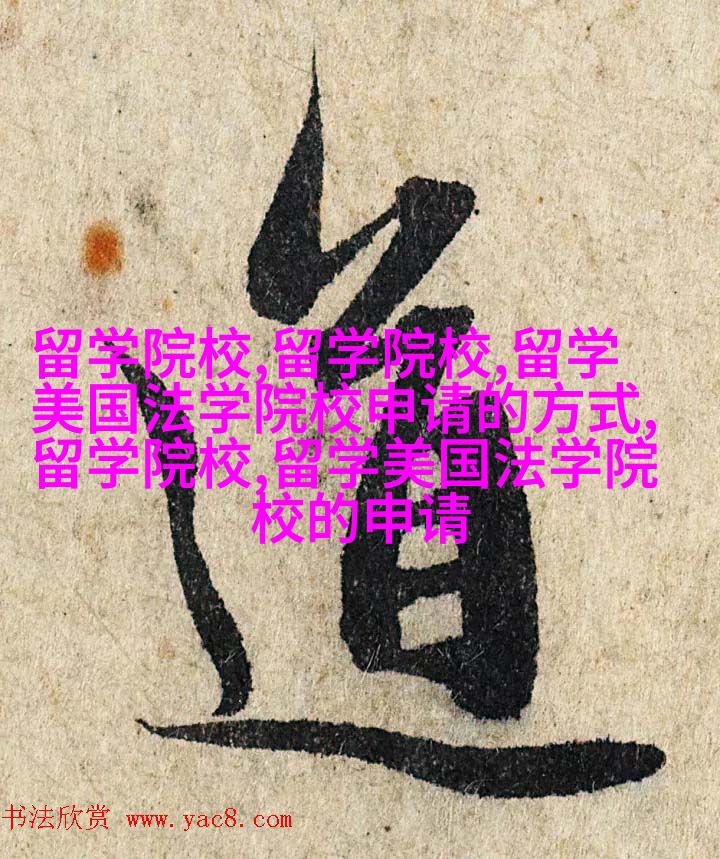 道
留学院校,留学院校,留学
美国法学院校申请的方式,
留学院校,留学美国法学院
校的申请
书法欣赏 www.yac8.com